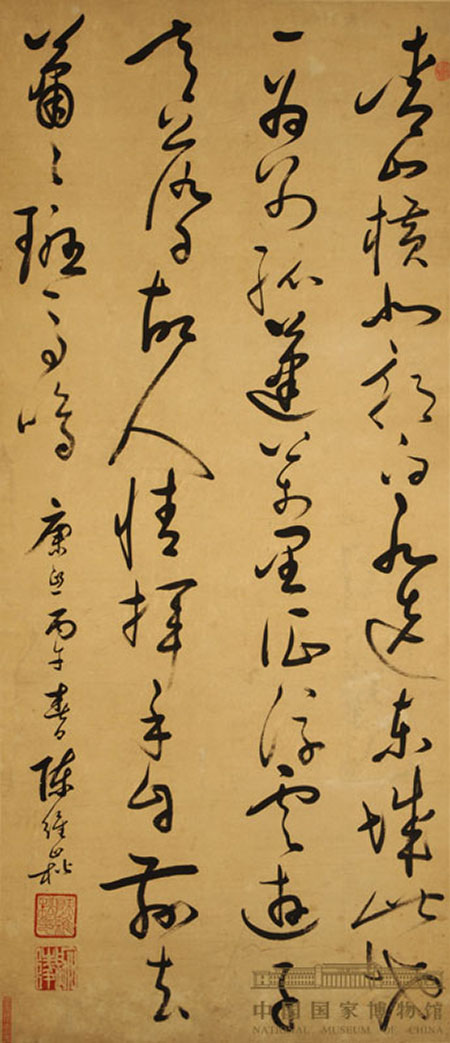 青山横北郭白水遶東城此地
一為別孤蓬萬里征浮雲遊子
意落日故人情揮手自茲去
蕭〻班馬鳴
康熙丙午春陳維崧
中国国家博物馆
NATIONAL MUSEUM OF CHINA